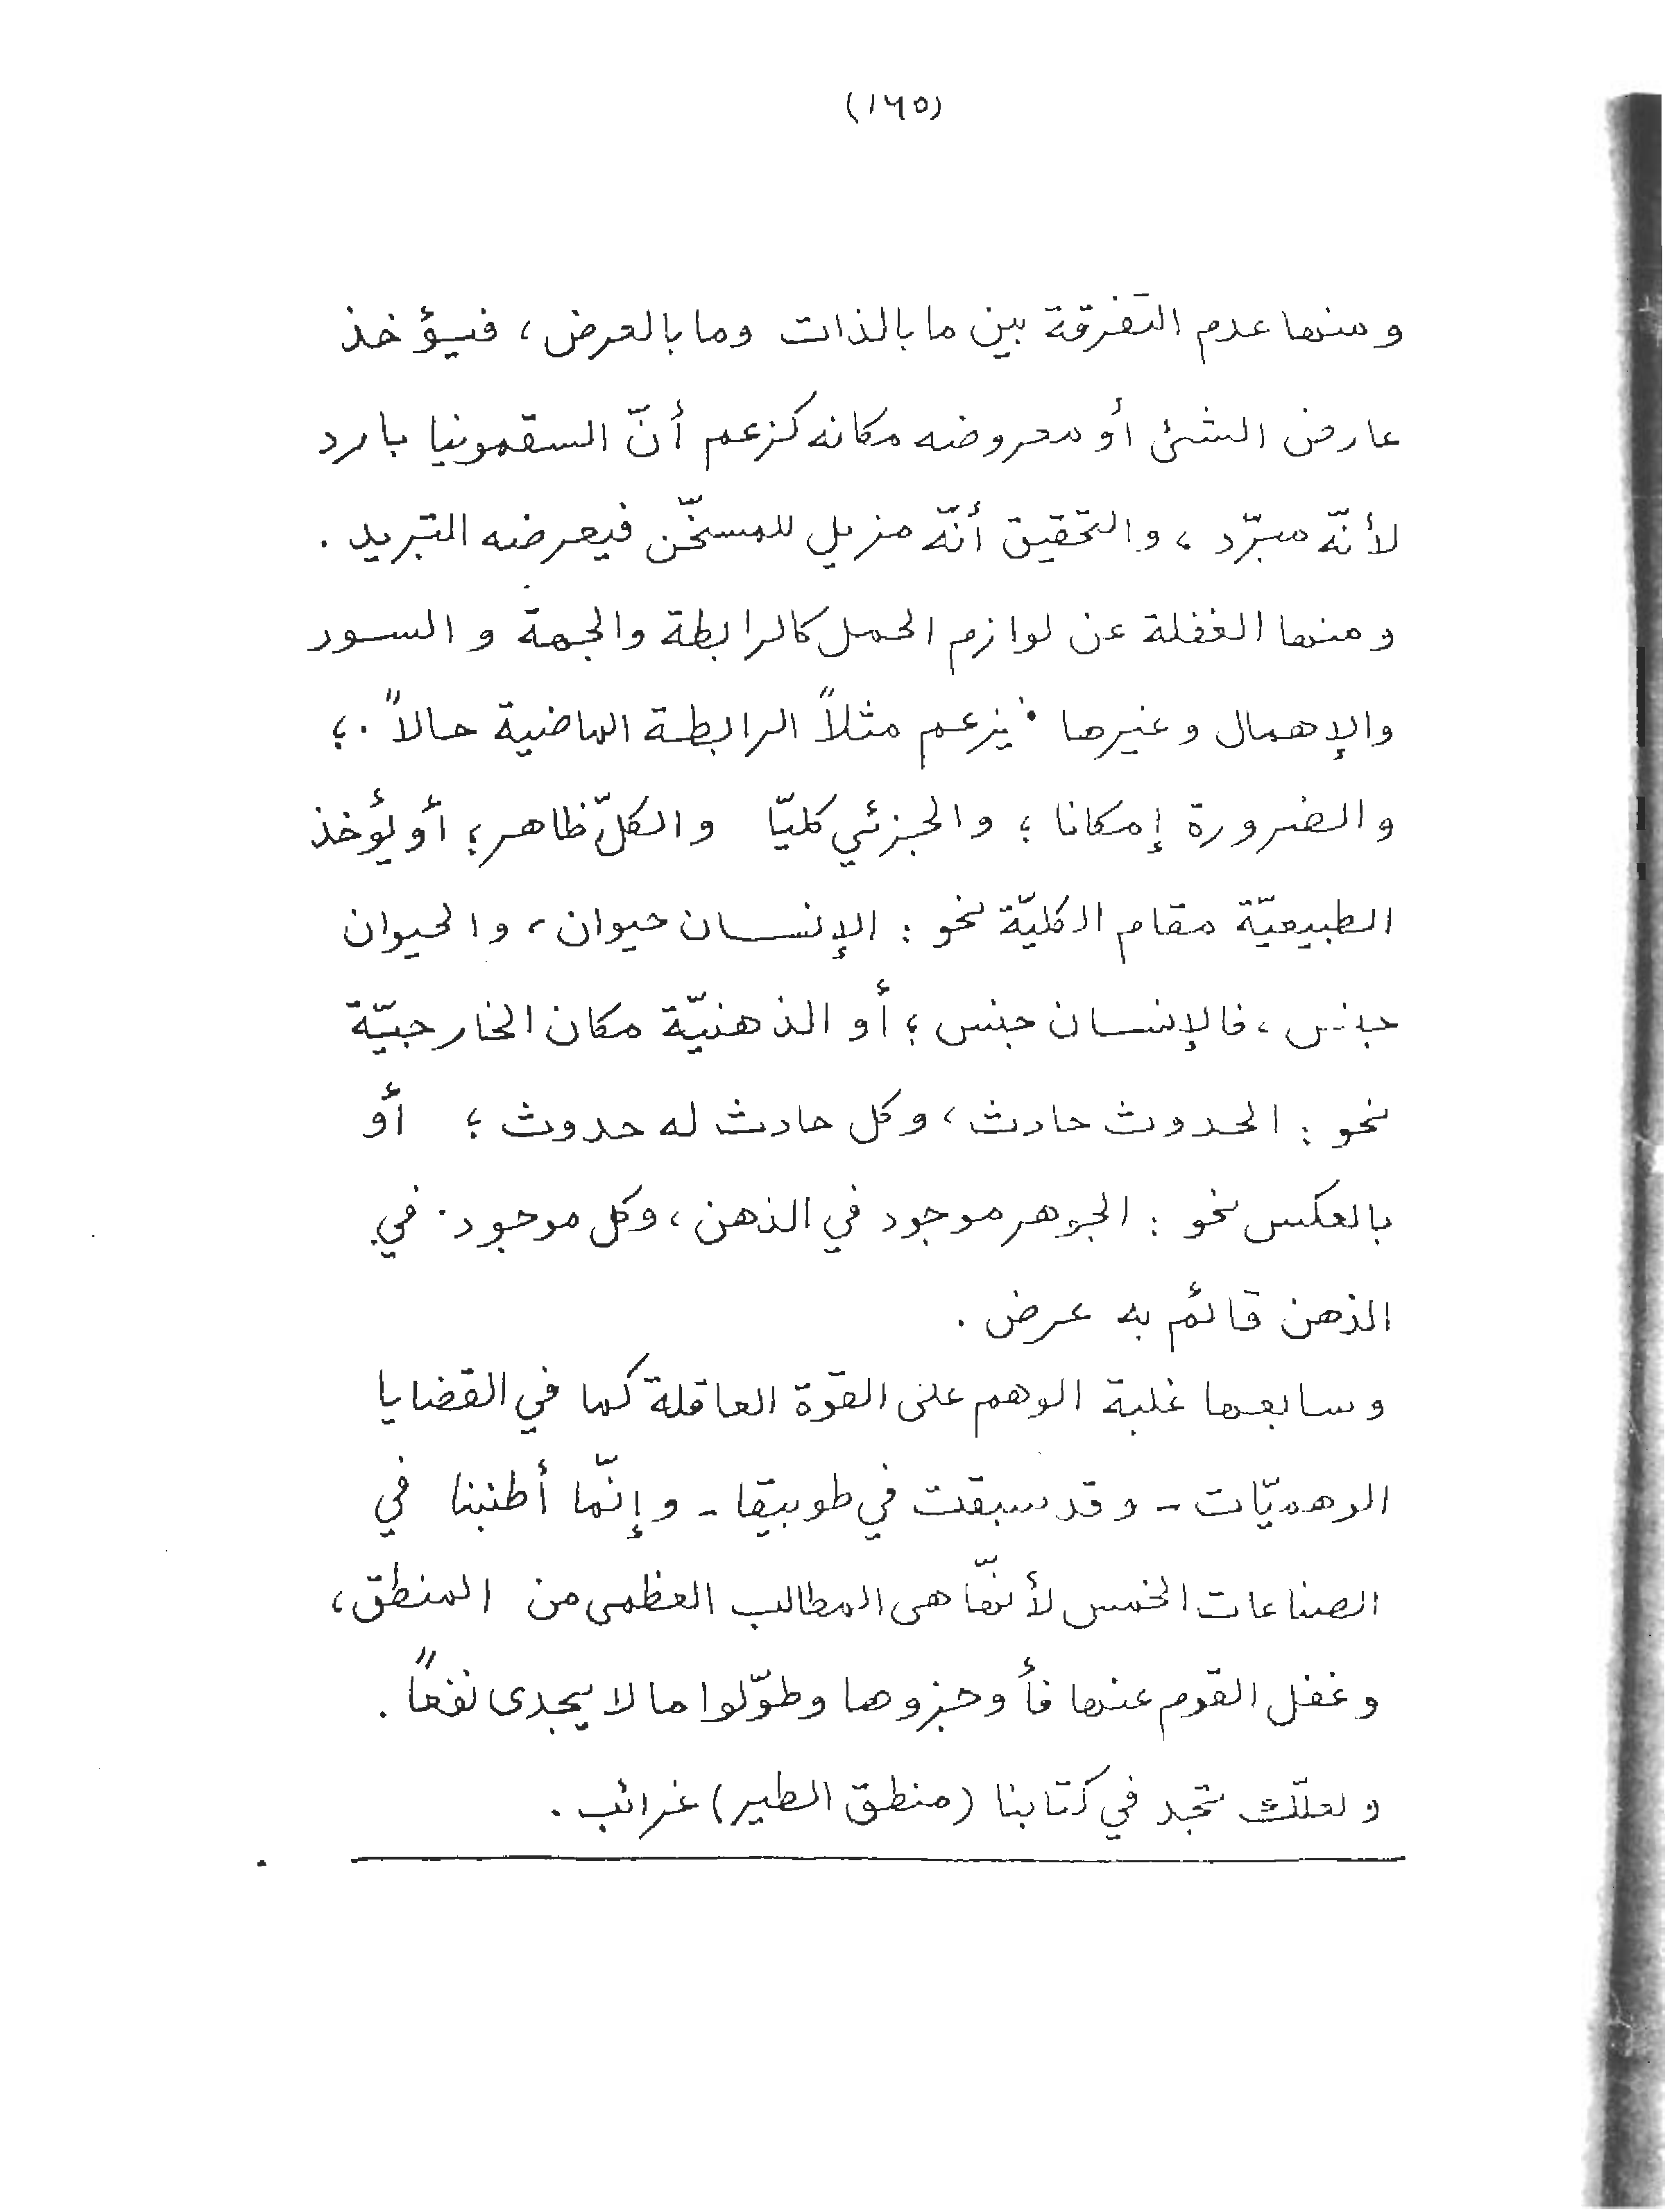 (١٦٥)
ومنها عدم التفرقة بين ما بالذات وما بالعرض، فيؤخذ
عارض الشئ أو معروضه مكانه كزعم أنّ السقمونيا بارد
لأنّه مبرّد، والتحقيق أنّه مزيل للمسخّن فيعرضه التبريد.
ومنها الغفلة عن لوازم الحمل كالرابطة والجهة والسور
والإهمال وغيرها فيزعم مثلاً الرابطة الماضية حالاً؛
والضرورة إمكانا؛ والجزئي كليّا والكلّ ظاهر؛ أو يؤخذ
الطبيعيّة مقام الكليّة نحو: الإنسان حيوان، والحيوان
جنس، فالإنسان جنس؛ أو الذهنيّة مكان الخارجيّة
نحو: الحدوث حادث، وكل حادث له حدوث؛ أو
بالعكس نحو: الجوهر موجود في الذهن، وكل موجود في
الذهن قائم به عرض.
وسابعها غلبة الوهم على القوّة العاقلة كما في القضايا
الوهميّات - وقد سبقت في طوبيقا - وإنّما أطنبنا في
الصناعات الخمس لأنّها هى المطالب العظمى من المنطق،
وغفل القوم عنها فأوجزوها وطوّلوا ما لا يجدى نفعاً.
ولعلّك تجد في كتابنا (منطق الطير) غرائب.